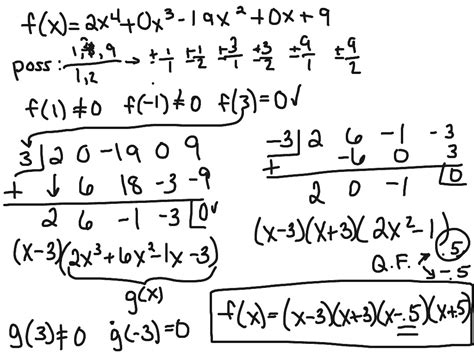 f(x) = 2x⁴+0x³-19x²+0x+9
poss: 1,3,9 / 1,2 → ±1/1 ±1/2 ±3/1 ±3/2 ±9/1 ±9/2
f(1)≠0 f(-1)≠0 f(3)=0✓
3| 2 0 -19 0 9
+ ↓ 6 18 -3 -9
2 6 -1 -3 |0✓
(x-3)(2x³+6x²-1x-3)
g(x)
g(3)≠0 g(-3)=0
-3| 2 6 -1 -3
+ -6 0 3
2 0 -1 |0
(x-3)(x+3)(2x²-1)
Q.F. .5
-.5
f(x)=(x-3)(x+3)(x-.5)(x+.5)